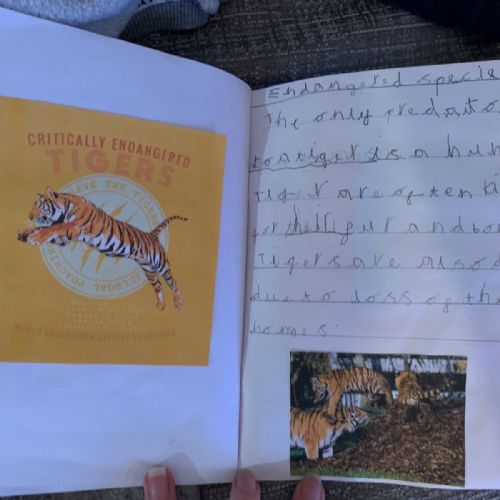 CRITICALLY ENDANGERED
TIGERS
SAVE THE TIGERS
WORLD ENDANGERED SPECIES AWARENESS
Endangered specie
The only predato
to a tiger is a hun
Tiger are often ki
for their fur and bo
Tigers are also d
due to loss of th
homes.